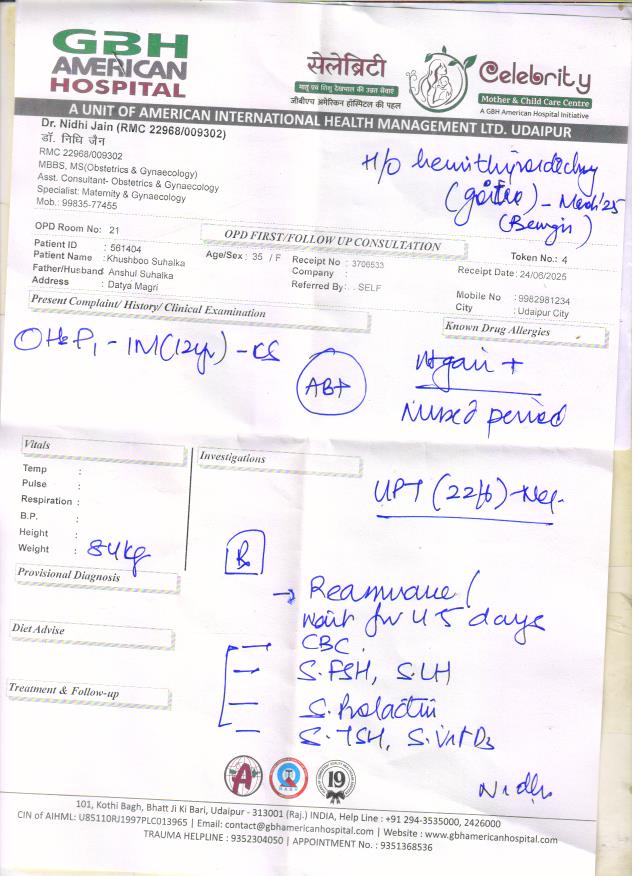 GBH
AMERICAN
HOSPITAL
सेलेब्रिटी
मातृ एवं शिशु देखभाल की उन्नत सेवाएं
जीबीएच अमेरिकन हॉस्पिटल की पहल
Celebrity
Mother & Child Care Centre
A GBH American Hospital Initiative
A UNIT OF AMERICAN INTERNATIONAL HEALTH MANAGEMENT LTD. UDAIPUR
Dr. Nidhi Jain (RMC 22968/009302)
डॉ. निधि जैन
RMC 22968/009302
MBBS, MS(Obstetrics & Gynaecology)
Asst. Consultant- Obstetrics & Gynaecology
Specialist: Maternity & Gynaecology
Mob.: 99835-77455
H/o hemithyroidectomy
(goitre) - March'25
(Benign)
OPD Room No: 21
OPD FIRST/FOLLOW UP CONSULTATION
Token No.: 4
Patient ID : 561404
Age/Sex : 35 / F
Receipt No : 3706533
Receipt Date : 24/06/2025
Patient Name : Khushboo Suhalka
Company :
Father/Husband Anshul Suhalka
Referred By: . SELF
Mobile No : 9982981234
Address : Datya Magri
City : Udaipur City
Present Complaint/ History/ Clinical Examination
Known Drug Allergies
P1 - 1M (12yr) - CS
AB+
Missed period
Vitals
Investigations
Temp :
Pulse :
Respiration :
B.P. :
Height :
Weight : 84kg
UPT (22/6) - Neg.
Rx
Provisional Diagnosis
→ Reassurance /
wait for 4 5 days
Diet Advise
CBC.
S. FSH, S. LH
Treatment & Follow-up
S. Prolactin
S. TSH, S. Vit D3
Nidhi
19
101, Kothi Bagh, Bhatt Ji Ki Bari, Udaipur - 313001 (Raj.) INDIA, Help Line : +91 294-3535000, 2426000
CIN of AIHML: U85110RJ1997PLC013965 | Email: contact@gbhamericanhospital.com | Website : www.gbhamericanhospital.com
TRAUMA HELPLINE : 9352304050 | APPOINTMENT No. : 9351368536